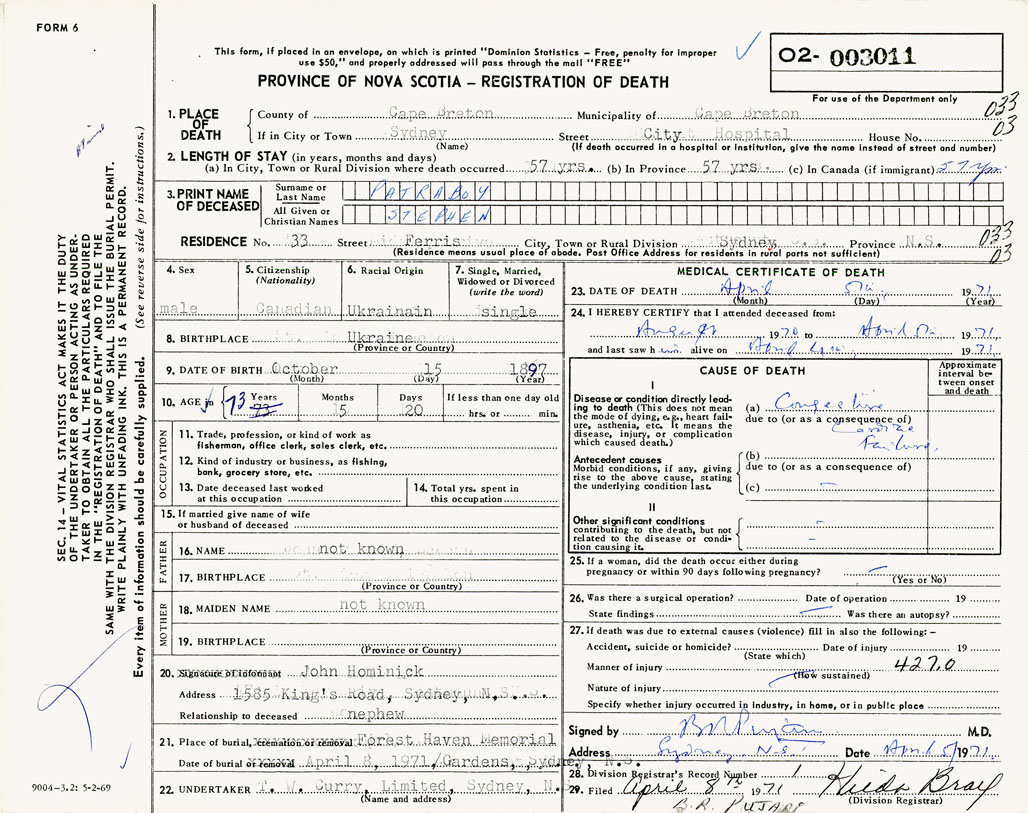 FORM 6
This form, if placed in an envelope, on which is printed "Dominion Statistics – Free, penalty for improper
use $50," and properly addressed will pass through the mail "FREE"
PROVINCE OF NOVA SCOTIA – REGISTRATION OF DEATH
02- 003011
For use of the Department only
033
03
1. PLACE OF DEATH
County of Cape Breton Municipality of Cape Breton
If in City or Town Sydney Street City Hospital House No.
(Name) (If death occurred in a hospital or institution, give the name instead of street and number)
2. LENGTH OF STAY (in years, months and days)
(a) In City, Town or Rural Division where death occurred 57 yrs. (b) In Province 57 yrs. (c) In Canada (if immigrant) 57 yrs.
3. PRINT NAME OF DECEASED
Surname or Last Name PATRABOY
All Given or Christian Names STEPHEN
RESIDENCE No. 33 Street Ferris City, Town or Rural Division Sydney Province N.S.
(Residence means usual place of abode. Post Office Address for residents in rural parts not sufficient)
033
03
4. Sex male
5. Citizenship (Nationality) Canadian
6. Racial Origin Ukrainain
7. Single, Married, Widowed or Divorced (write the word) single
8. BIRTHPLACE Ukraine
(Province or Country)
9. DATE OF BIRTH October 15 1897
(Month) (Day) (Year)
10. AGE 73 Years Months 5 Days 20 If less than one day old hrs. or min.
OCCUPATION
11. Trade, profession, or kind of work as
fisherman, office clerk, sales clerk, etc.
12. Kind of industry or business, as fishing,
bank, grocery store, etc.
13. Date deceased last worked
at this occupation
14. Total yrs. spent in
this occupation
15. If married give name of wife
or husband of deceased
FATHER
16. NAME not known
17. BIRTHPLACE
(Province or Country)
MOTHER
18. MAIDEN NAME not known
19. BIRTHPLACE
(Province or Country)
20. Signature of Informant John Hominick
Address 1585 King's Road, Sydney, N.S.
Relationship to deceased nephew
21. Place of burial, cremation or removal Forest Haven Memorial
Date of burial or removal April 8, 1971/Gardens, Sydney, N.S.
22. UNDERTAKER T. W. Curry, Limited, Sydney, N.S.
(Name and address)
MEDICAL CERTIFICATE OF DEATH
23. DATE OF DEATH April 5th 1971
(Month) (Day) (Year)
24. I HEREBY CERTIFY that I attended deceased from:
August 1970 to April 5th 1971
and last saw him alive on April 1971
CAUSE OF DEATH
Approximate interval between onset and death
I
Disease or condition directly leading
to death (This does not mean
the mode of dying, e.g., heart failure,
asthenia, etc. It means the
disease, injury, or complication
which caused death.)
(a) Congestive
due to (or as a consequence of)
Cardiac
Failure.
Antecedent causes
Morbid conditions, if any, giving
rise to the above cause, stating
the underlying condition last.
(b)
due to (or as a consequence of)
(c)
II
Other significant conditions
contributing to the death, but not
related to the disease or condition
causing it.
25. If a woman, did the death occur either during
pregnancy or within 90 days following pregnancy?
(Yes or No)
26. Was there a surgical operation? Date of operation 19
State findings Was there an autopsy?
27. If death was due to external causes (violence) fill in also the following: –
Accident, suicide or homicide? Date of injury 19
(State which)
Manner of injury 4270
(How sustained)
Nature of injury
Specify whether injury occurred in industry, in home, or in public place
Signed by M.D.
Address Sydney, N.S. Date April 5/1971
28. Division Registrar's Record Number 1
29. Filed April 8th 1971
(Division Registrar)
B.R. PUJARI
SEC. 14 – VITAL STATISTICS ACT MAKES IT THE DUTY
OF THE UNDERTAKER OR PERSON ACTING AS UNDER-
TAKER TO OBTAIN ALL THE PARTICULARS REQUIRED
IN THE "REGISTRATION OF DEATH" AND TO FILE THE
SAME WITH THE DIVISION REGISTRAR WHO SHALL ISSUE THE BURIAL PERMIT.
WRITE PLAINLY WITH UNFADING INK. THIS IS A PERMANENT RECORD.
Every item of information should be carefully supplied. (See reverse side for instructions.)
9004–3.2: 5-2-69